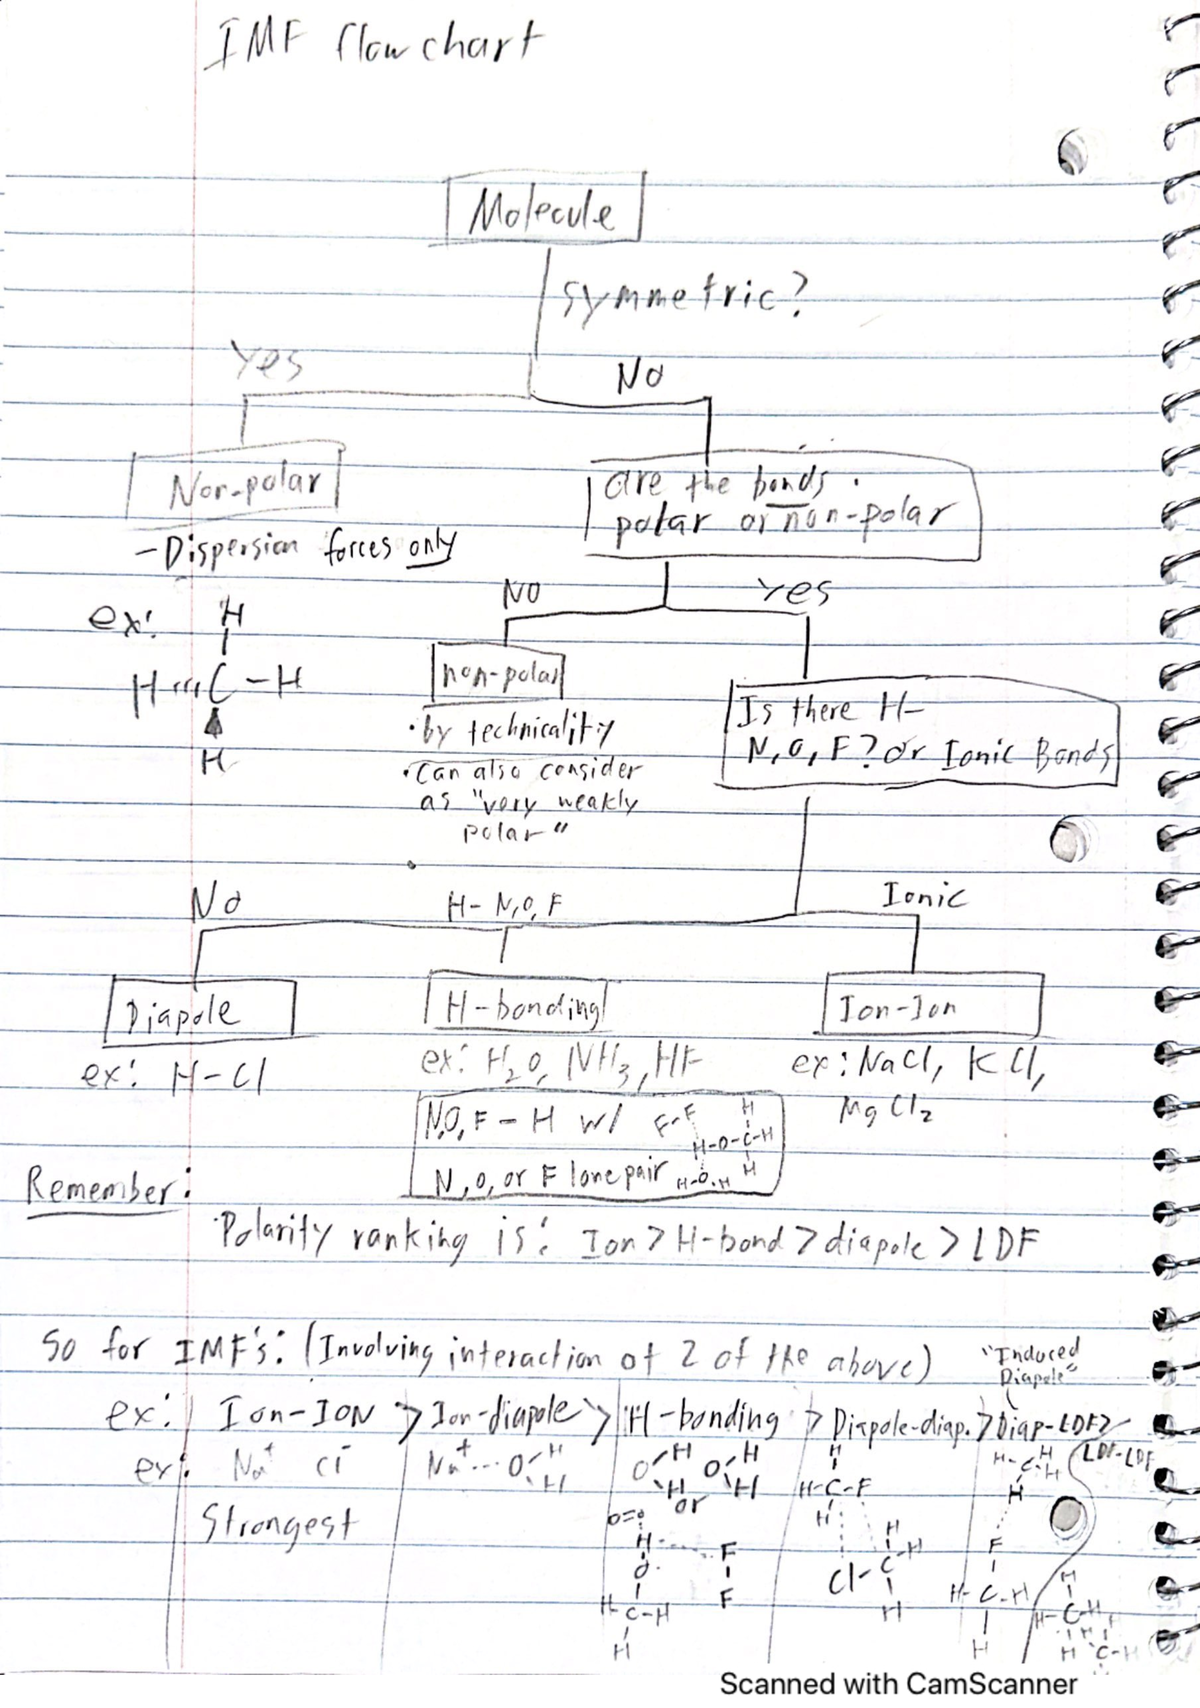 IMF flowchart
Molecule
symmetric?
Yes
No
Non-polar
are the bonds
polar or non-polar
- Dispersion forces only
NO
Yes
ex:
H
H C - H
H
non-polar
Is there H-
N, O, F? or Ionic Bonds
• by technicality
• Can also consider
as "very weakly
polar"
No
H- N, O, F
Ionic
Diapole
H-bonding
Ion-Ion
ex: H-Cl
ex: H2O, NH3, HF
ex: NaCl, KCl,
MgCl2
N,O, F - H w/
F-F
H
H-O-C-H
H
N, O, or F lone pair
H-O-H
Remember:
Polarity ranking is: Ion > H-bond > diapole > LDF
So for IMF's: (Involving interaction of 2 of the above)
"Induced
Diapole"
ex: Ion-ION > Ion-diapole > H-bonding > Diapole-diap. > Diap-LDF >
LDF-LDF
ex: Na+ Cl- Na+ ... O H H
O H H O H H
or
Strongest
O=O
H
O
H-C-H
H
F
F
H
H-C-F
H
Cl-C
H
H
H
H-C H
H
H
F
H-C-H
H
H
H-C-H
H
H
C-H
Scanned with CamScanner